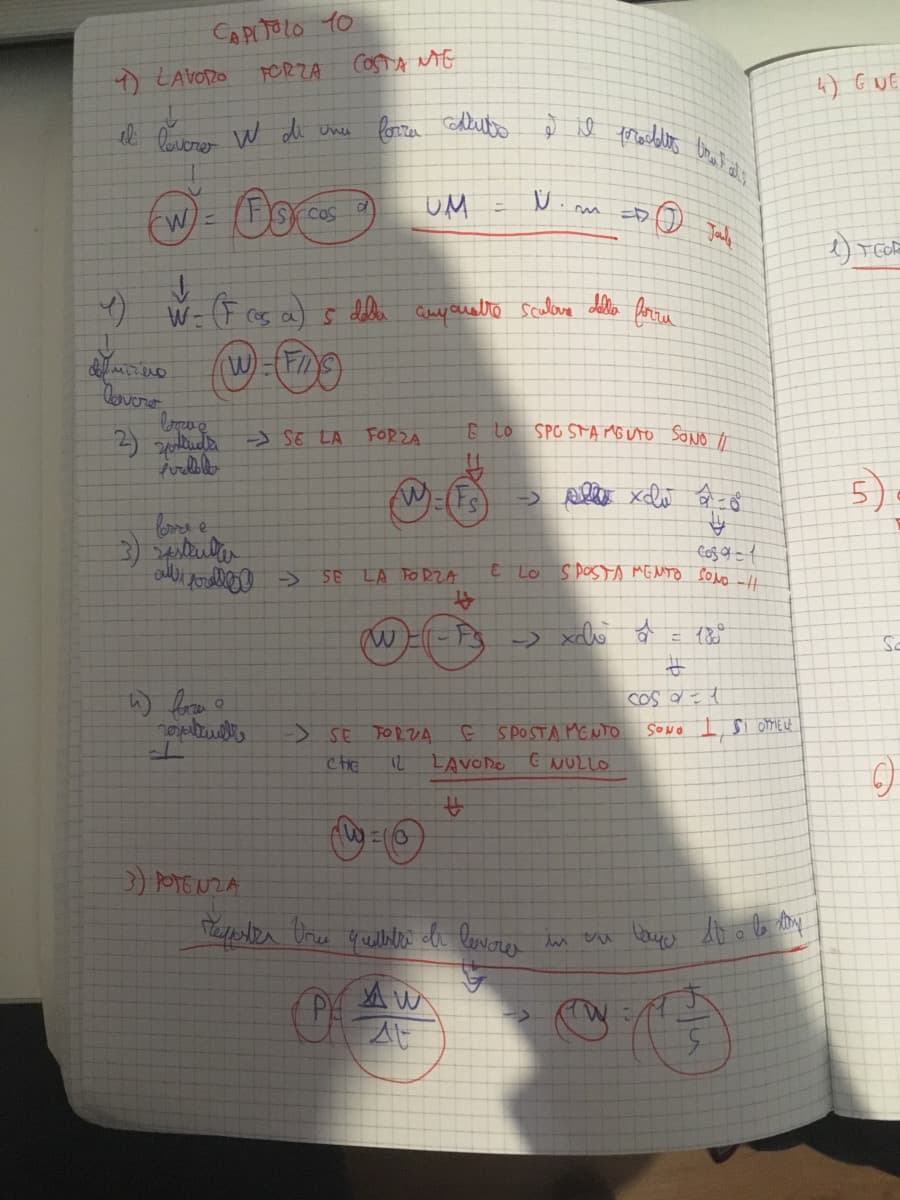 CAPITOLO 10
1) LAVORO FORZA COSTANTE
↓
il lavoro W di una forza costante è il prodotto
↓
W = F s cos α UM = N·m => J Joule
↓
1) W = (F cos α) s della componente scalare della forza
↓
definizione lavoro
W = F// s
2) forza e spostamento parallelo -> SE LA FORZA E LO SPOSTAMENTO SONO //
⇓
W = Fs -> xchè α̂ = 0°
⇓
cos α = 1
3) forza e spostamento -> SE LA FORZA E LO SPOSTAMENTO SONO -//
⇓
W = -Fs -> xchè α̂ = 180°
⇓
cos α = 1
4) forza e spostamento ⊥ -> SE FORZA E SPOSTAMENTO SONO ⊥, SI OTTIENE
CHE IL LAVORO E NULLO
⇓
W = 0
3) POTENZA
↓
una quantità di lavoro in un tempo Δt
⇓
P = ΔW/Δt -> 1W = 1 J/s
4) ENE
1) TEOR
5)
6)